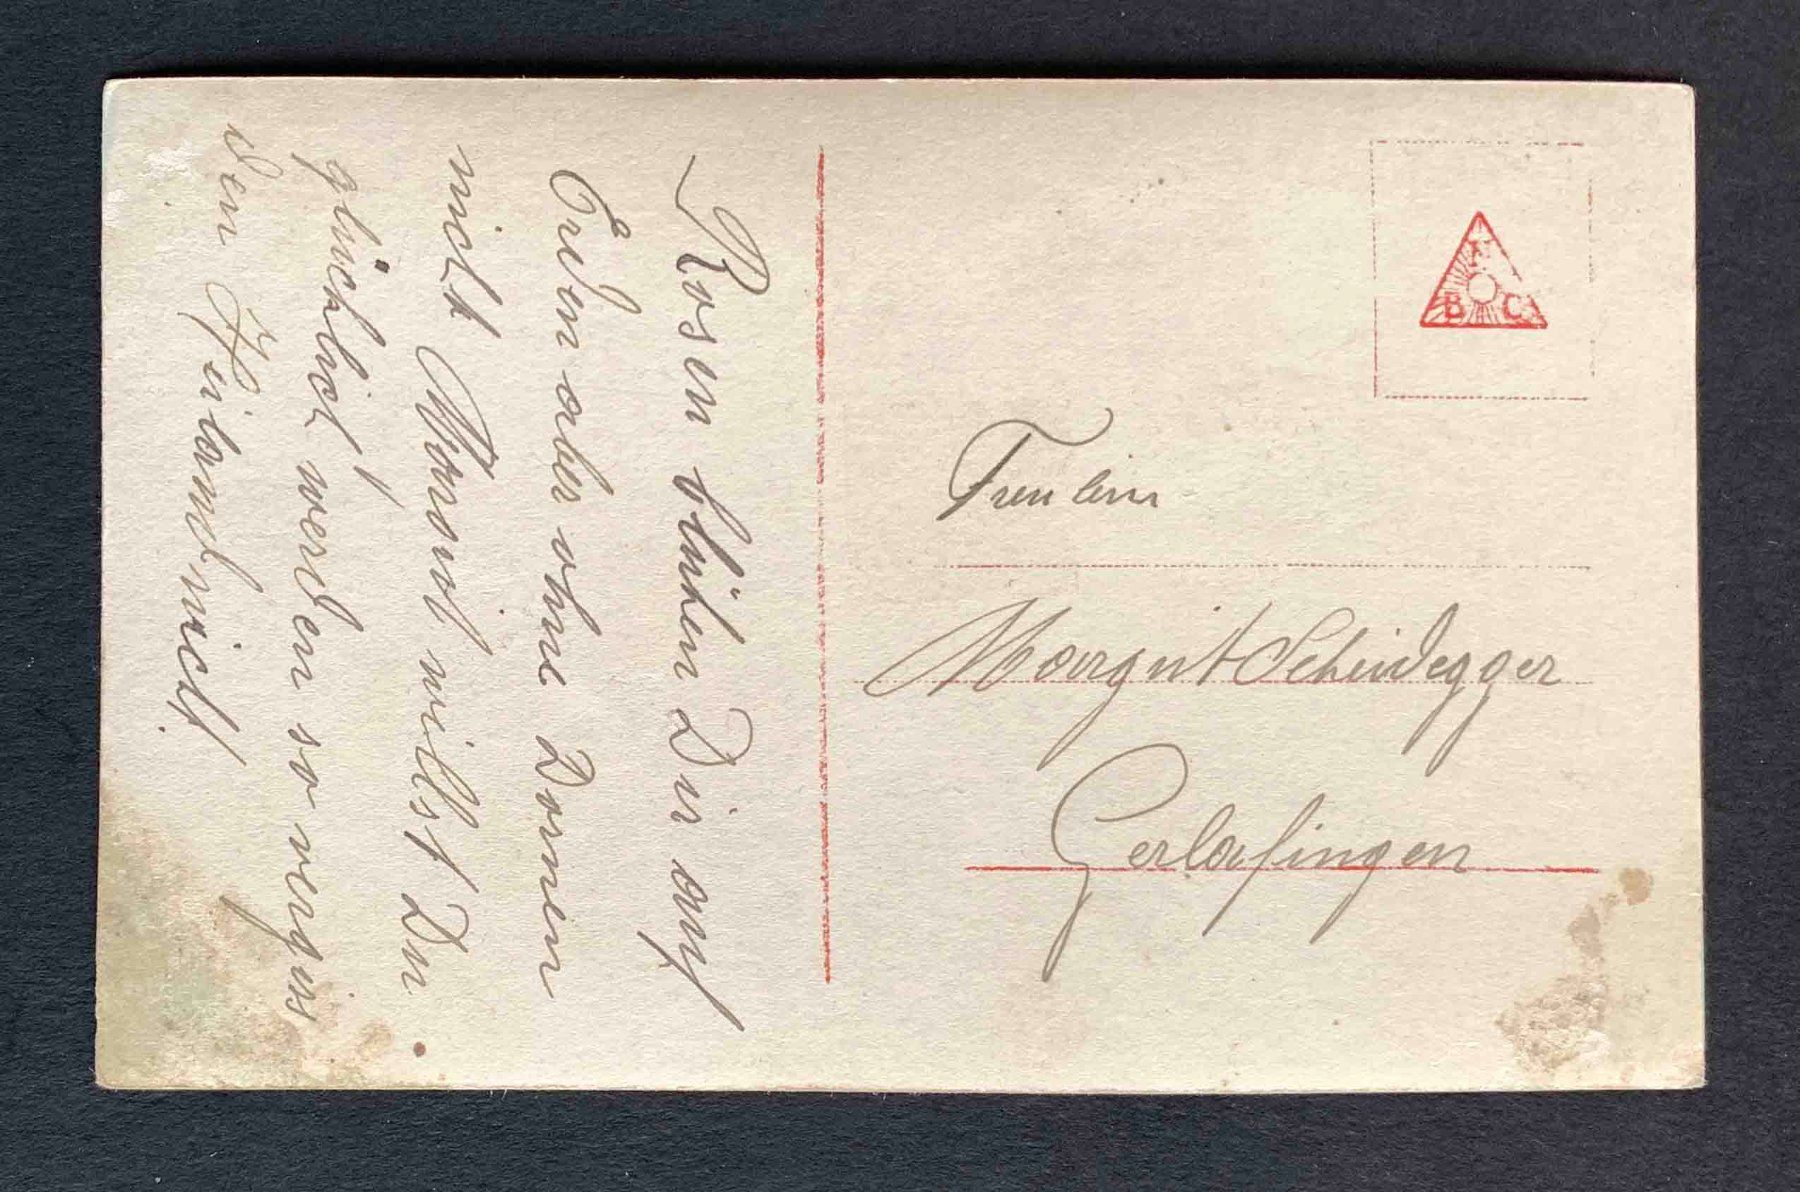 Rosen blühen Dir auf
Erden aber ohne Dornen
nicht Morgit willst Du
glücklich werden so vergiss
dein Heiland nicht.
N
B C
Freulein
Margrit Scheidegger
Gerlafingen